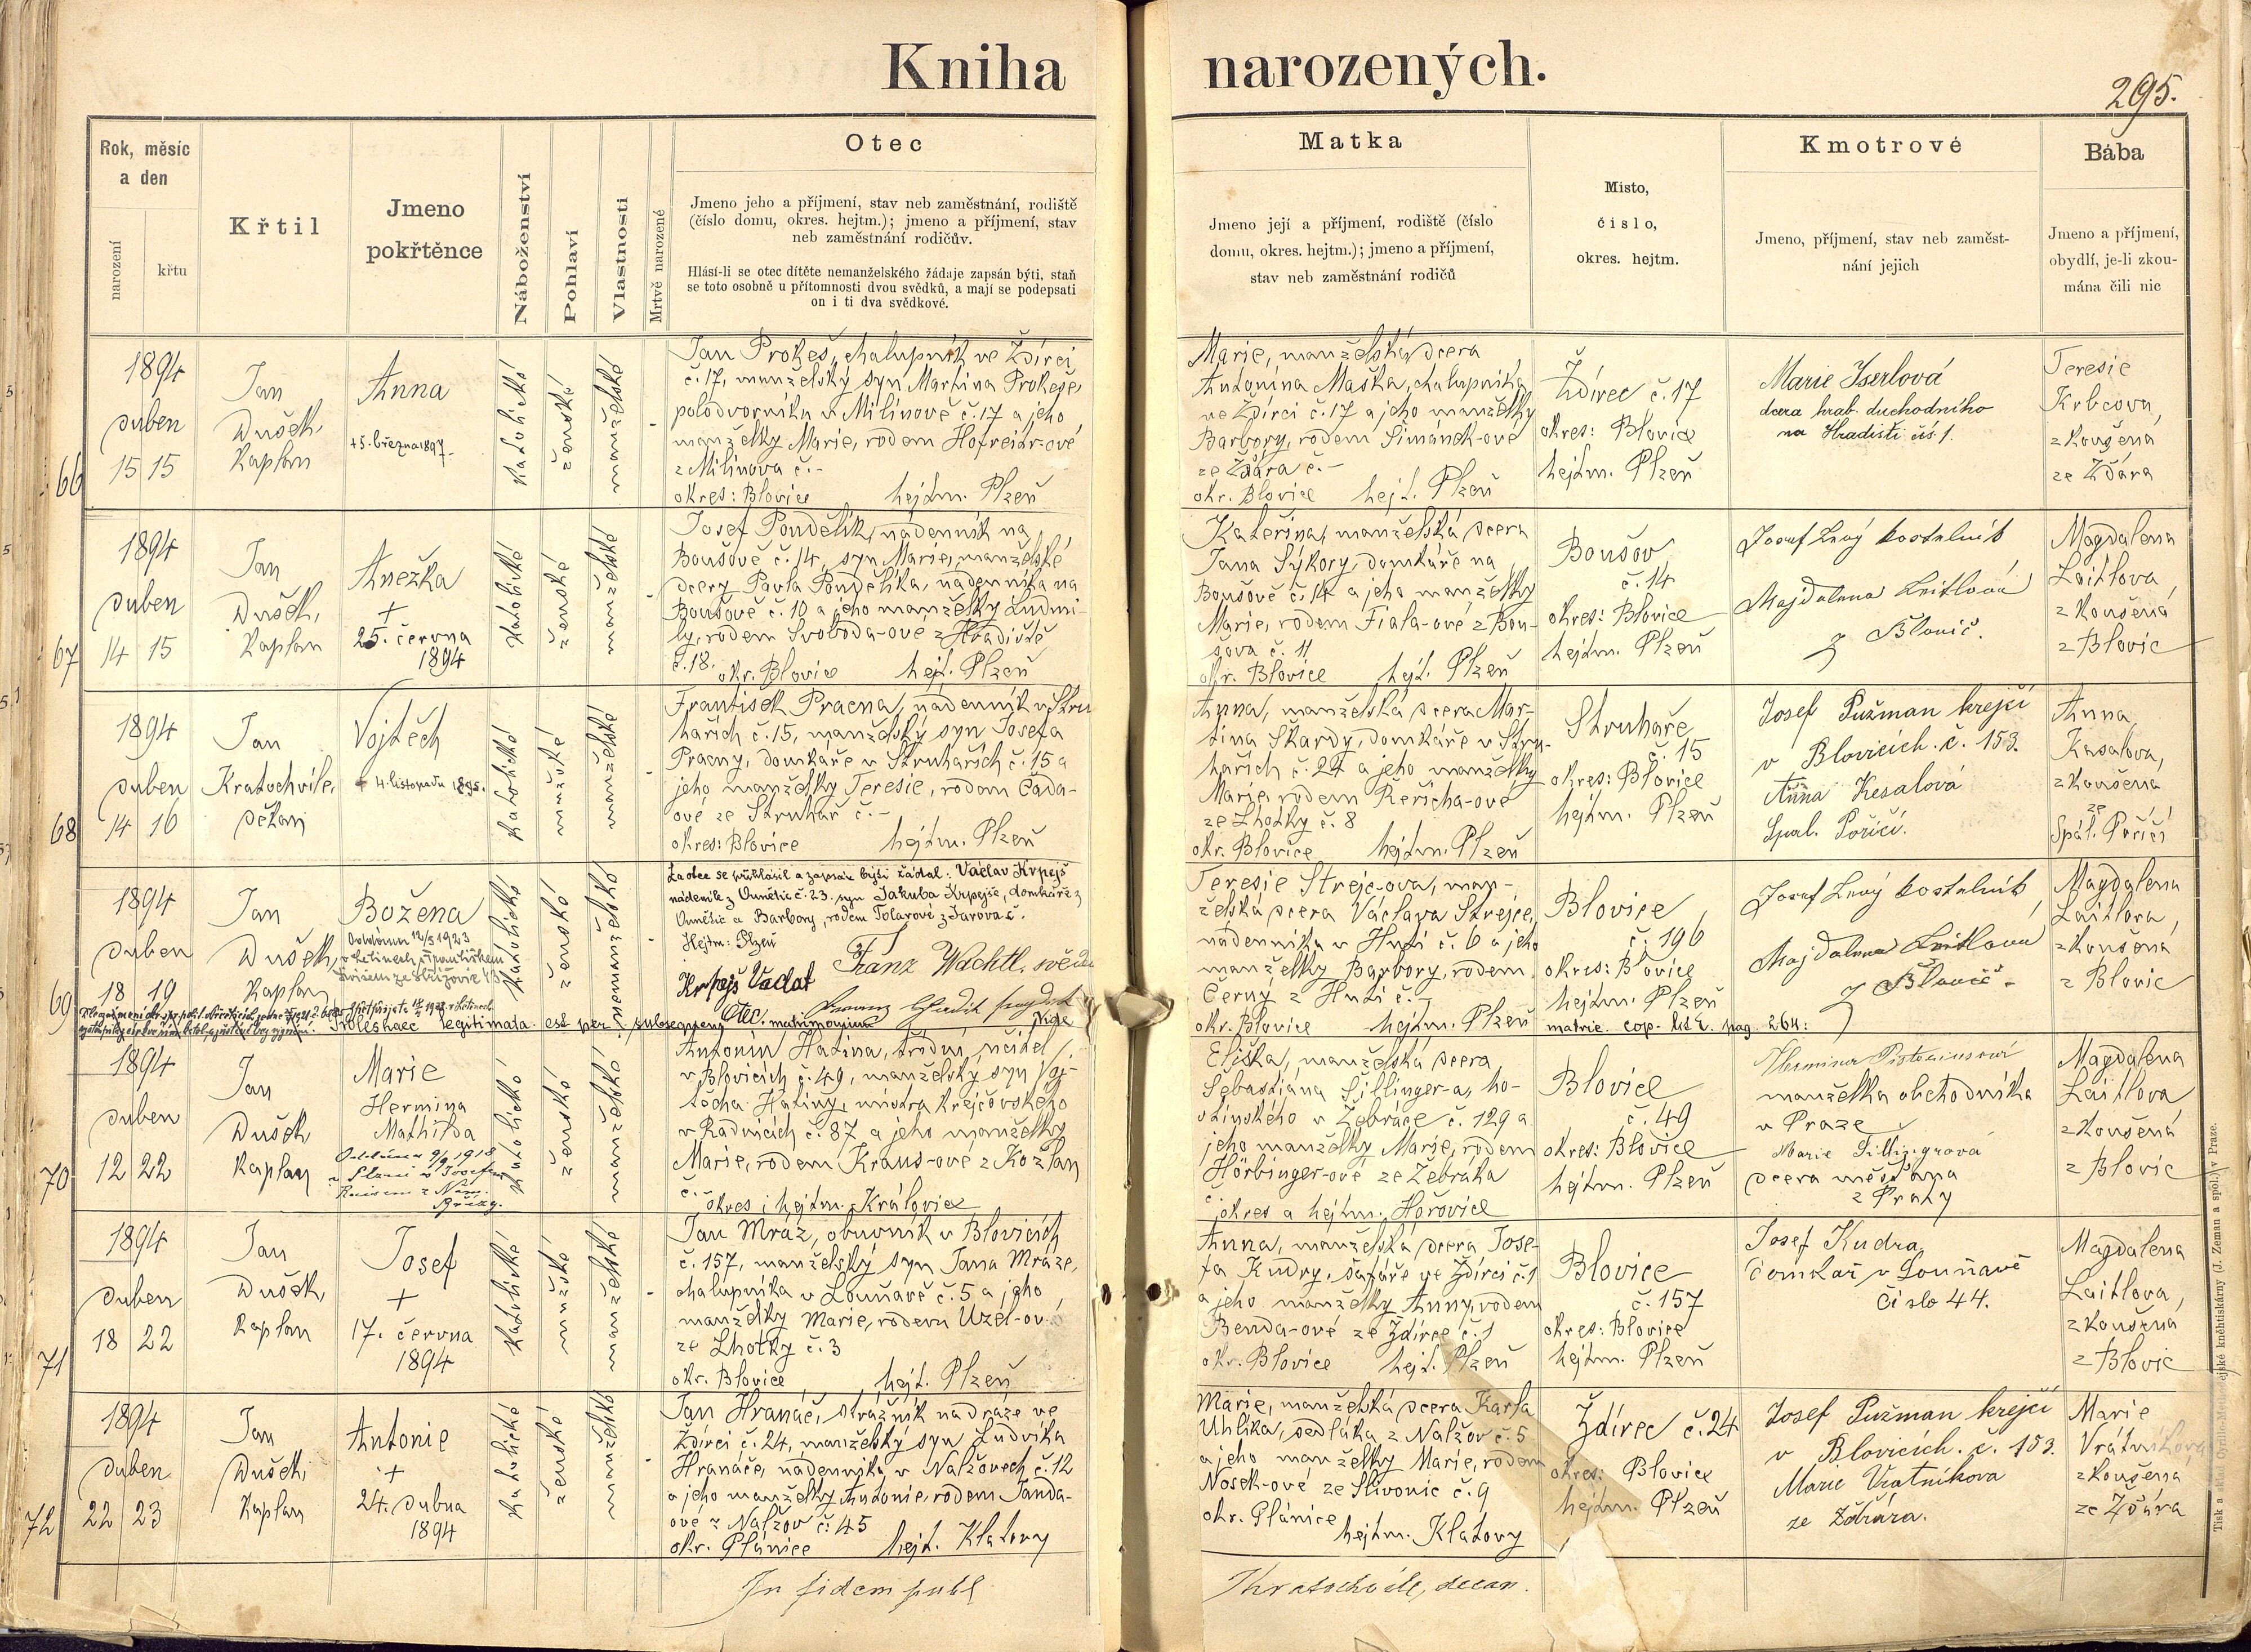 Kniha narozených.
295.
Rok, měsíc
a den
narození
křtu
Křtil
Jmeno
pokřtěnce
Náboženství
Pohlaví
Vlastnosti
Mrtvě narozené
Otec
Jmeno jeho a příjmení, stav neb zaměstnání, rodiště
(číslo domu, okres. hejtm.); jmeno a příjmení, stav
neb zaměstnání rodičův.
Hlásí-li se otec dítěte nemanželského žádaje zapsán býti, staň
se toto osobně u přítomnosti dvou svědků, a mají se podepsati
on i ti dva svědkové.
Matka
Jmeno její a příjmení, rodiště (číslo
domu, okres. hejtm.); jmeno a příjmení,
stav neb zaměstnání rodičů
Místo,
číslo,
okres. hejtm.
Kmotrové
Jmeno, příjmení, stav neb zaměst-
nání jejich
Bába
Jmeno a příjmení,
obydlí, je-li zkou-
mána čili nic
66
1894
duben
15 15
Jan
Dušek,
Kaplan
Anna
+5. března 1897.
katolické
ženské
manželské
Jan Prokeš, chalupník ve Ždírci
č. 17, manželský syn Martina Prokeše,
polodvorníka v Milínově č. 17 a jeho
manželky Marie, rodem Hofreitr-ové
z Milínova č. -
okres: Blovice hejtm. Plzeň
Marie, manželská dcera
Antonína Maška, chalupníka
ve Ždírci č. 17 a jeho manželky
Barbory, rodem Šimánek-ové
ze Žďára č. -
okr. Blovice hejt. Plzeň
Ždírec č. 17
okres: Blovice
hejtm. Plzeň
Marie Iserlová
dcera hrab. duchodního
na Hradišti čís 1.
Teresie
Krbcova,
zkoušená
ze Žďára
67
1894
duben
14 15
Jan
Dušek,
Kaplan
Anežka
+
25. června
1894
katolické
ženské
manželské
Josef Pondělík, nádenník na
Boušově č. 14, syn Marie, manželské
dcery Pavla Pondělíka, nádenníka na
Boušově č. 10 a jeho manželky Ludmi-
ly, rodem Svoboda-ové z Hradiště
č. 18. okr. Blovice hejt. Plzeň
Kateřina, manželská dcera
Jana Sýkory, domkáře na
Boušově č. 14 a jeho manželky
Marie, rodem Fiala-ové z Bou-
šova č. 11
okr. Blovice hejt. Plzeň
Boušov
č. 14
okres: Blovice
hejtm. Plzeň
Josef Levý kostelník
Majdalena Leitlová
z Blovic.
Magdalena
Laitlova,
zkoušená
z Blovic
68
1894
duben
14 16
Jan
Kratochvíle,
děkan
Vojtěch
+ 4. listopadu 1895.
katolické
mužské
manželské
František Pracna, nádenník v Stru
hařích č. 15, manželský syn Josefa
Pracny, domkáře v Struhařích č. 15 a
jeho manželky Teresie, rodem Čada-
ové ze Struhař č. -
okres: Blovice hejtm. Plzeň
Anna, manželská dcera Mar-
tina Škardy, domkáře v Stru-
hařích č. 24 a jeho manželky
Marie, rodem Řeřicha-ové
ze Lhotky č. 8
okr. Blovice hejtm. Plzeň
Struhaře
č. 15
okres: Blovice
hejtm. Plzeň
Josef Pužman krejčí
v Blovicích. č. 153.
Anna Kesalová
Spál. Poříčí.
Anna
Kasalova,
zkoušená
ze
Spál. Poříčí
69
1894
duben
18 19
Jan
Dušek,
Kaplan
Božena
Oddána 12/5 1923
katolické
ženské
nemanželské
Za otce se přihlásil a zapsán býti žádal: Václav Krpejš
nádeník z Vuměřic č. 23. syn Jakuba Krpejše, domkáře z
Vuměřic a Barbory, rodem Tolarové z Jarova č.
Hejtm: Plzeň
Krpejš Václav
Otec.
Franz Wachtl, svědek
legitimata est per subsequens matrimonium
Teresie Strejc-ova, man-
želská dcera Václava Strejce,
nádenníka v Huti č. 6 a jeho
manželky Barbory, rodem
Černý z Huti č. 7
okr. Blovice hejtm. Plzeň
matric. cop. pag. 264:
Blovice
č. 196
okres: Blovice
hejtm. Plzeň
Josef Levý kostelník
Majdalena Leitlová
z Blovic.
Magdalena
Laitlova,
zkoušená
z Blovic
70
1894
duben
12 22
Jan
Dušek
Kaplan
Marie
Hermina
Mathilda
Oddána 9/9 1918
katolické
ženské
manželské
Antonín Hatina, řídící učitel
v Blovicích č. 49, manželský syn Voj-
těcha Hatiny, mistra krejčovského
v Radnicích č. 87 a jeho manželky
Marie, rodem Kraus-ové z Kožlan
č. - okres i hejtm. Kralovice
Eliška, manželská dcera
Sebastiána Šillinger-a, ho-
stinského v Žebráce č. 129 a
jeho manželky Marie, rodem
Hörbinger-ové ze Žebráka
č. okres a hejtm. Hořovice
Blovice
č. 49
okres: Blovice
hejtm. Plzeň
manželka obchodníka
v Praze
Marie Šillingrová
dcera měšťana
z Prahy
Magdalena
Laitlova
zkoušená
z Blovic
71
1894
duben
18 22
Jan
Dušek,
Kaplan
Josef
+
17. června
1894
katolické
mužské
manželské
Jan Mráz, obuvník v Blovicích
č. 157, manželský syn Jana Mráze,
chalupníka v Louňavě č. 5 a jeho
manželky Marie, rodem Uzel-ové
ze Lhotky č. 3
okr. Blovice hejt. Plzeň
Anna, manželská dcera Jose-
fa Kudry, šafáře ve Ždírci č. 1
a jeho manželky Anny, rodem
Benda-ové ze Ždírce č. 1
okr. Blovice hejt. Plzeň
Blovice
č. 157
okres: Blovice
hejtm. Plzeň
Josef Kudra
Domkař v Louňavě
číslo 44.
Magdalena
Laitlova,
zkoušená
z Blovic
72
1894
duben
22 23
Jan
Dušek,
Kaplan
Antonie
+
24. dubna
1894
katolické
ženské
manželské
Jan Hranáč, strážník na dráze ve
Ždírci č. 24, manželský syn Ludvíka
Hranáče, nádenníka v Nalžovech č. 12
a jeho manželky Antonie, rodem Janda-
ové z Nalžov č. 45
okr. Plánice hejt. Klatovy
Marie, manželská dcera Karla
Uhlíka, sedláka z Nalžov č. 5
a jeho manželky Marie, rodem
Nosek-ové ze Slivonic č. 9
okr. Plánice
hejtm. Klatovy
Ždírec č. 24
okres: Blovice
hejtm. Plzeň
Josef Pužman krejčí
v Blovicích. č. 153.
Marie Vratníkova
ze Ždára.
Marie
Vrátníkova,
zkoušena
ze Žďára
In fidem publ
Kratochvíle, decan.